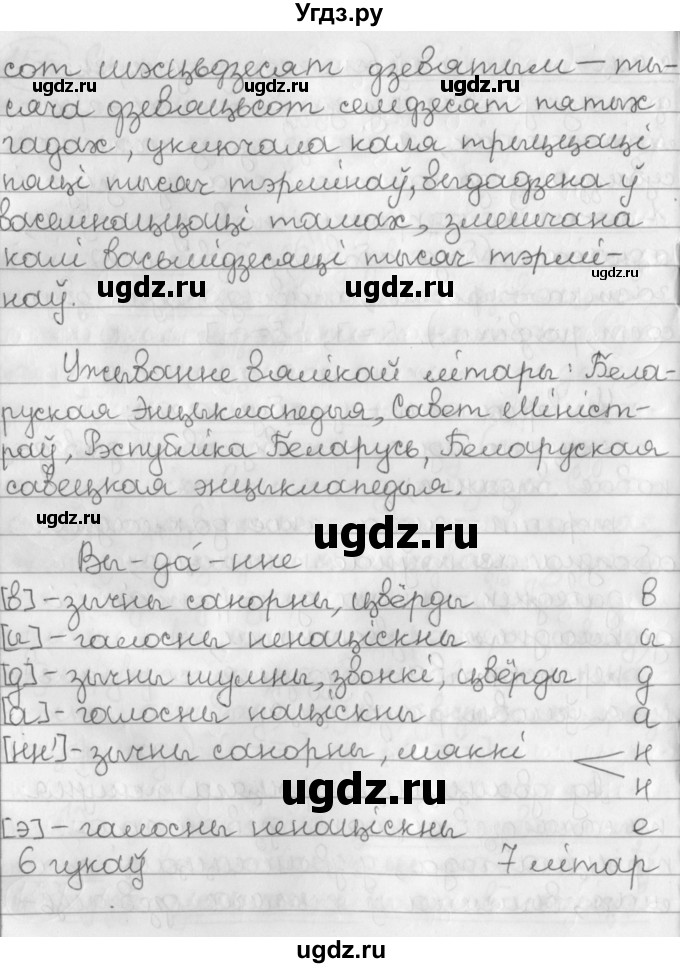 Угдз.ру
сот шэсцьдзесят дзевятым — ты-
сяча дзевяцьсот семдзесят пятых
гадах, уключала каля трыццаці
пяці тысяч тэрмінаў, выдадзена ў
васемнаццаці тамах, змешчана
калі васьмідзесяці тысяч тэрмі-
наў.
ugdz.ru
ugdz.ru
ugdz.ru
Ужыванне вялікай літары: Бела-
руская Энцыклапедыя, Савет Мініст-
раў, Рэспубліка Беларусь, Беларуская
савецкая энцыклапедыя.
ugdz.ru
ugdz.ru
Вы-да́-нне
[в]-зычны санорны, цвёрды в
[ы]-галосны ненаціскны ы
[д]-зычны шумны, звонкі, цвёрды д
[а]-галосны націскны а
[нн']-зычны санорны, мяккі н
н
ugdz.ru
[э]-галосны ненаціскны е
6 гукаў 7 літар
ugdz.ru